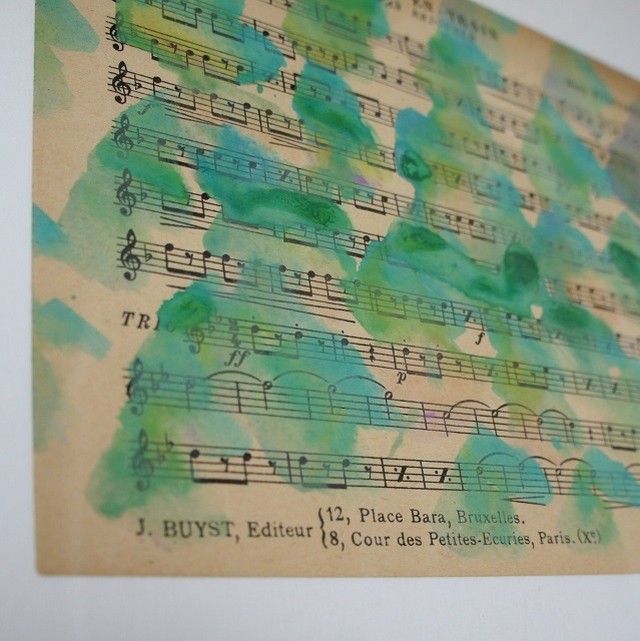 TRI
ff
p
f
J. BUYST, Editeur
12, Place Bara, Bruxelles.
8, Cour des Petites-Ecuries, Paris. (Xº)